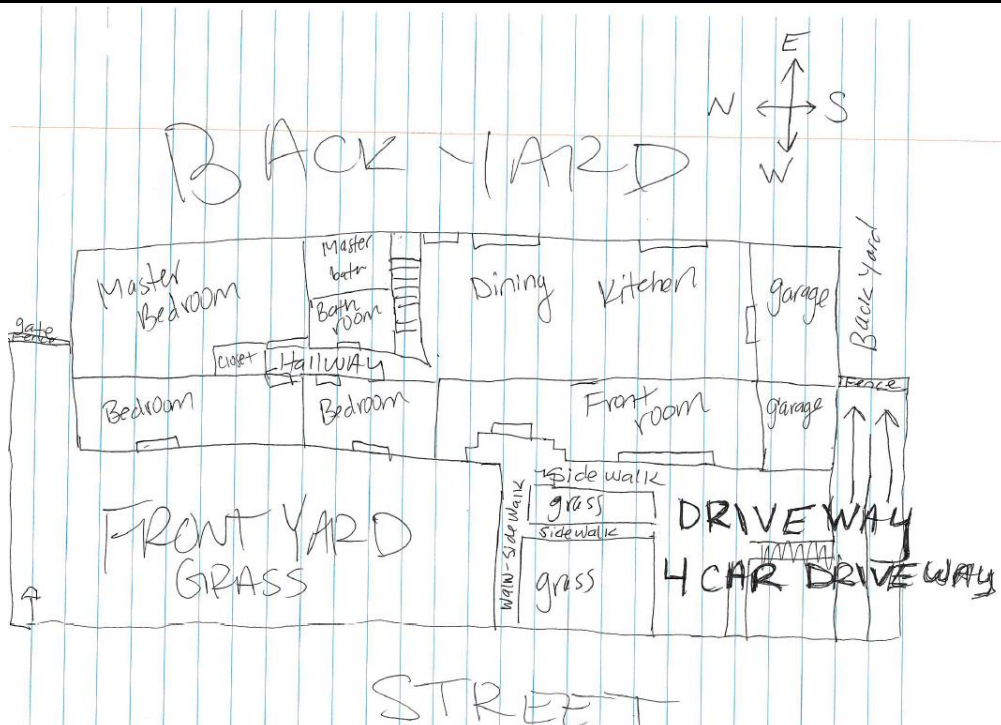 E
N S
W
BACK YARD
Back Yard
Master Bedroom
Master bath
Bath room
Dining
Kitchen
garage
gate
Fence
Closet
HallWAY
Fence
Bedroom
Bedroom
Front room
garage
Side walk
grass
side walk
grass
Walk-side walk
FRONT YARD
GRASS
DRIVE WAY
4 CAR DRIVE WAY
STREET